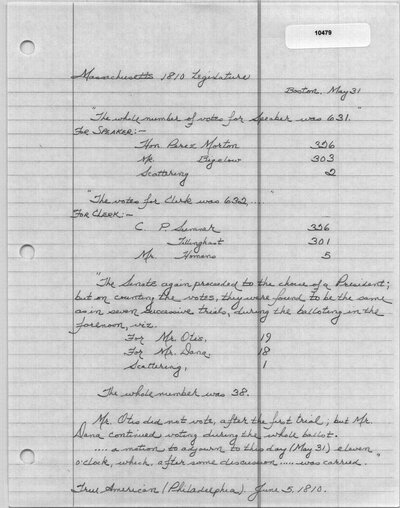 10479
Massachusetts 1810 Legislature
Boston, May 31
"The whole number of votes for Speaker was 631."
For Speaker:-
Hon Perez Morton 326
Mr. Bigelow 303
Scattering 2
"The votes for Clerk was 632,...."
For Clerk:-
C. P. Sumner 326
Tillinghast 301
Mr. Homans 5
"The Senate again proceeded to the choice of a President;
but on counting the votes, they were found to be the same
as in seven successive trials, during the balloting in the
forenoon, viz.
For Mr. Otis, 19
For Mr. Dana, 18
Scattering, 1
The whole number was 38.
Mr. Otis did not vote, after the first trial; but Mr.
Dana continued voting during the whole ballot.
.... a motion to adjourn to this day (May 31) eleven
o'clock, which, after some discussion ..... was carried."
True American (Philadelphia). June 5, 1810.